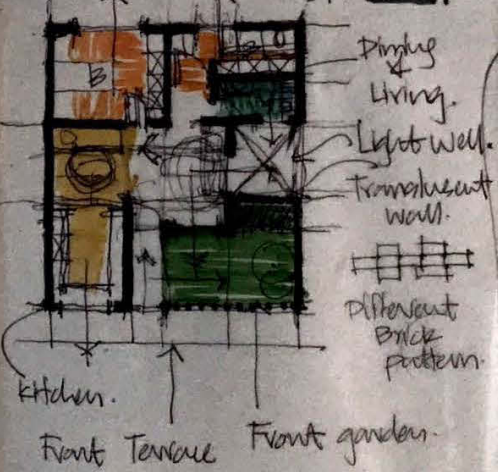 B
Dining
&
Living.
Light well.
Translusent
wall.
Different
Brick
pattern.
kitchen.
Front Terrace
Front garden.